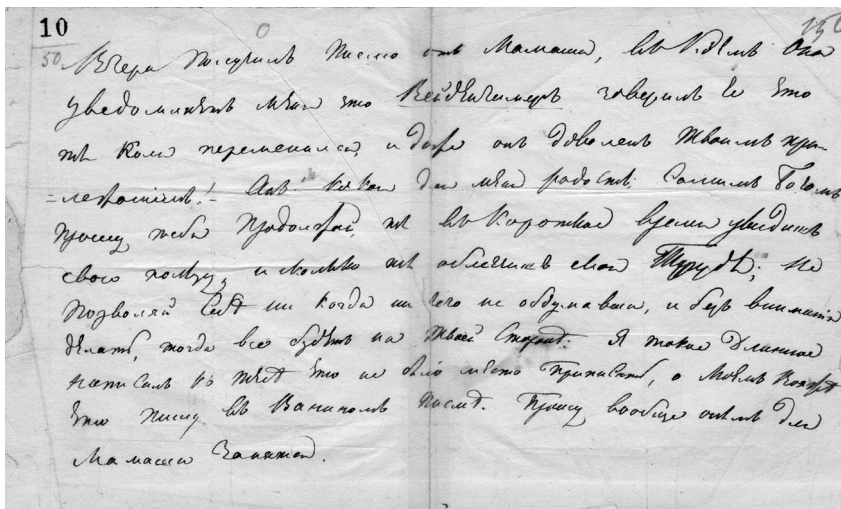 10
150
50
Вчера Получилъ Письмо отъ Мамаши, въ к. Она
уведомляетъ меня что Вейденгамеръ говорилъ Ей что
ты Коля переменился, и даже онъ доволенъ твоимъ при-
=лежаніемъ! — Ахъ какая для меня радость; Самимъ Богомъ
прошу тебя Продолжай, ты въ Короткое время увидишь
свою пользу, и сколько ты облегчишь свои Труды; не
позволяй Себѣ ни когда ни чего не обдумавши, и безъ вниманія
дѣлать, тогда все будетъ на твоей Сторонѣ. Я такое Длинное
написалъ къ тебѣ что не было мѣсто Приписать, о Моемъ
что пишу въ Ваничкомъ письмѣ. Прошу вообще для
Мамаши Занятся.